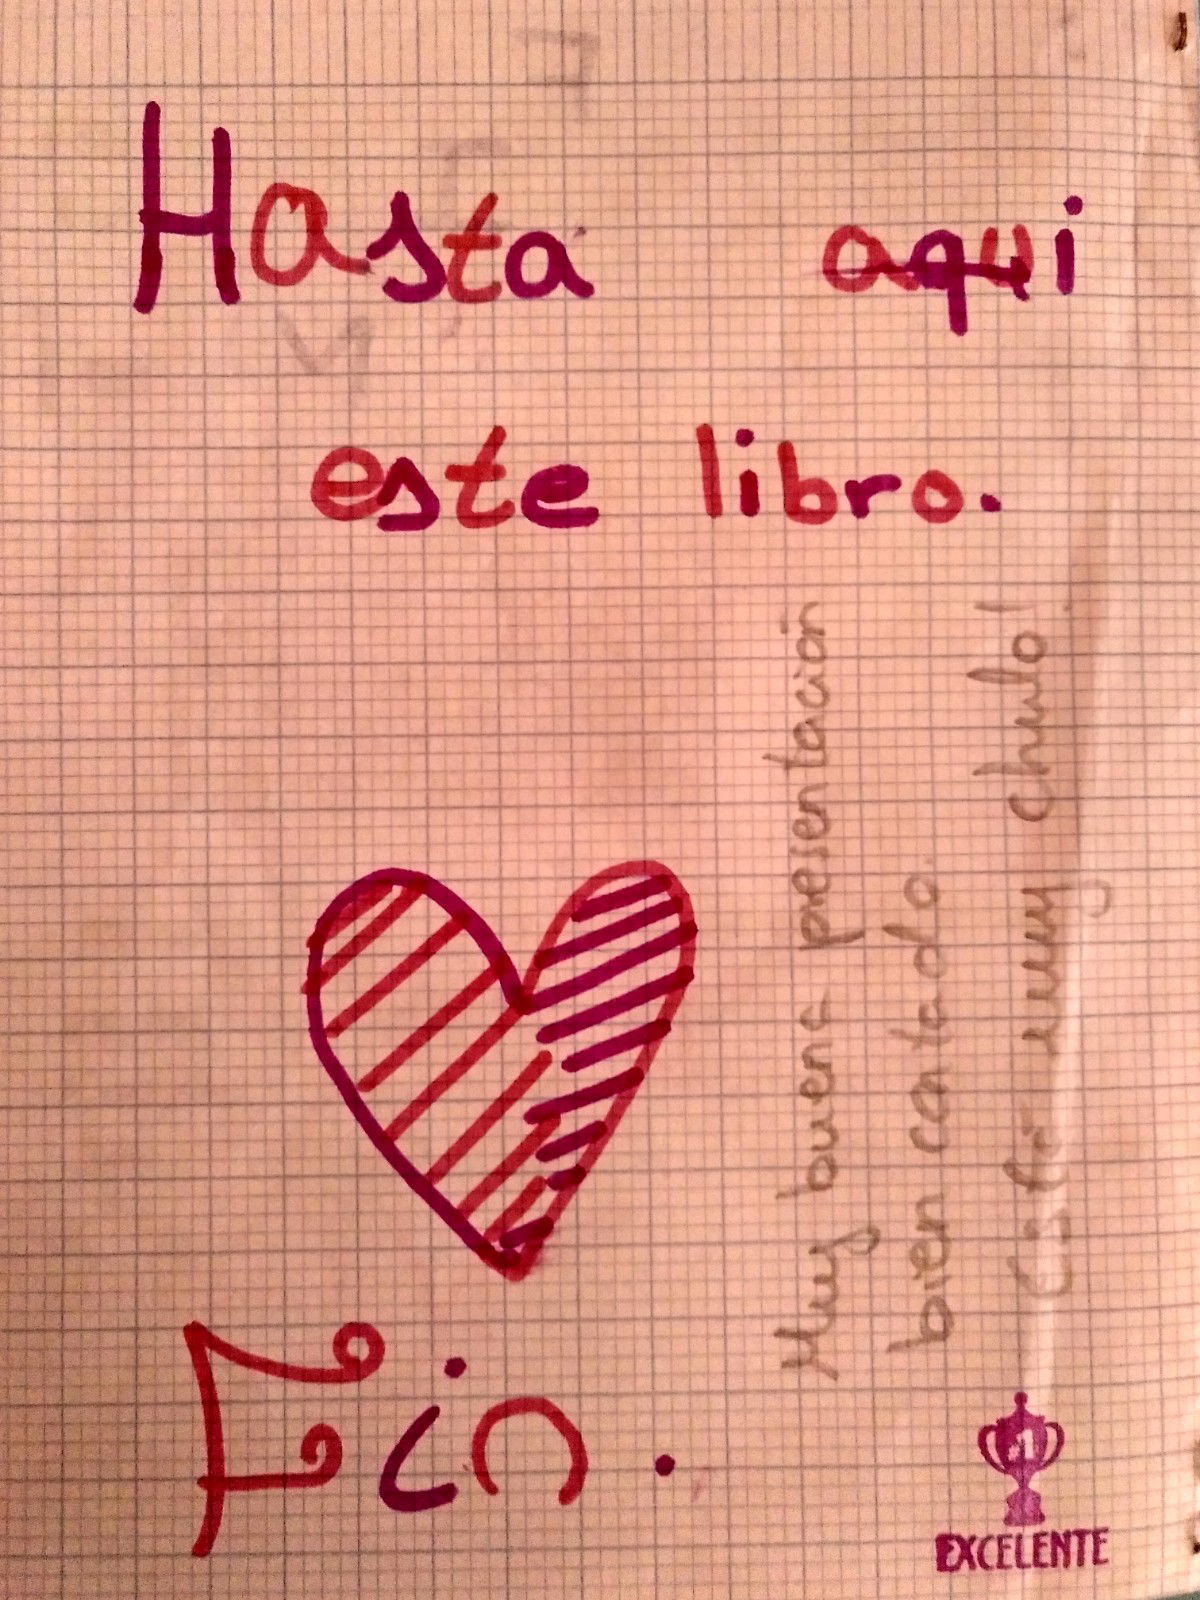 Hasta aqui
este libro.
Muy buena presentación
bien contado.
Está muy chulo!
Fin.
#1
EXCELENTE